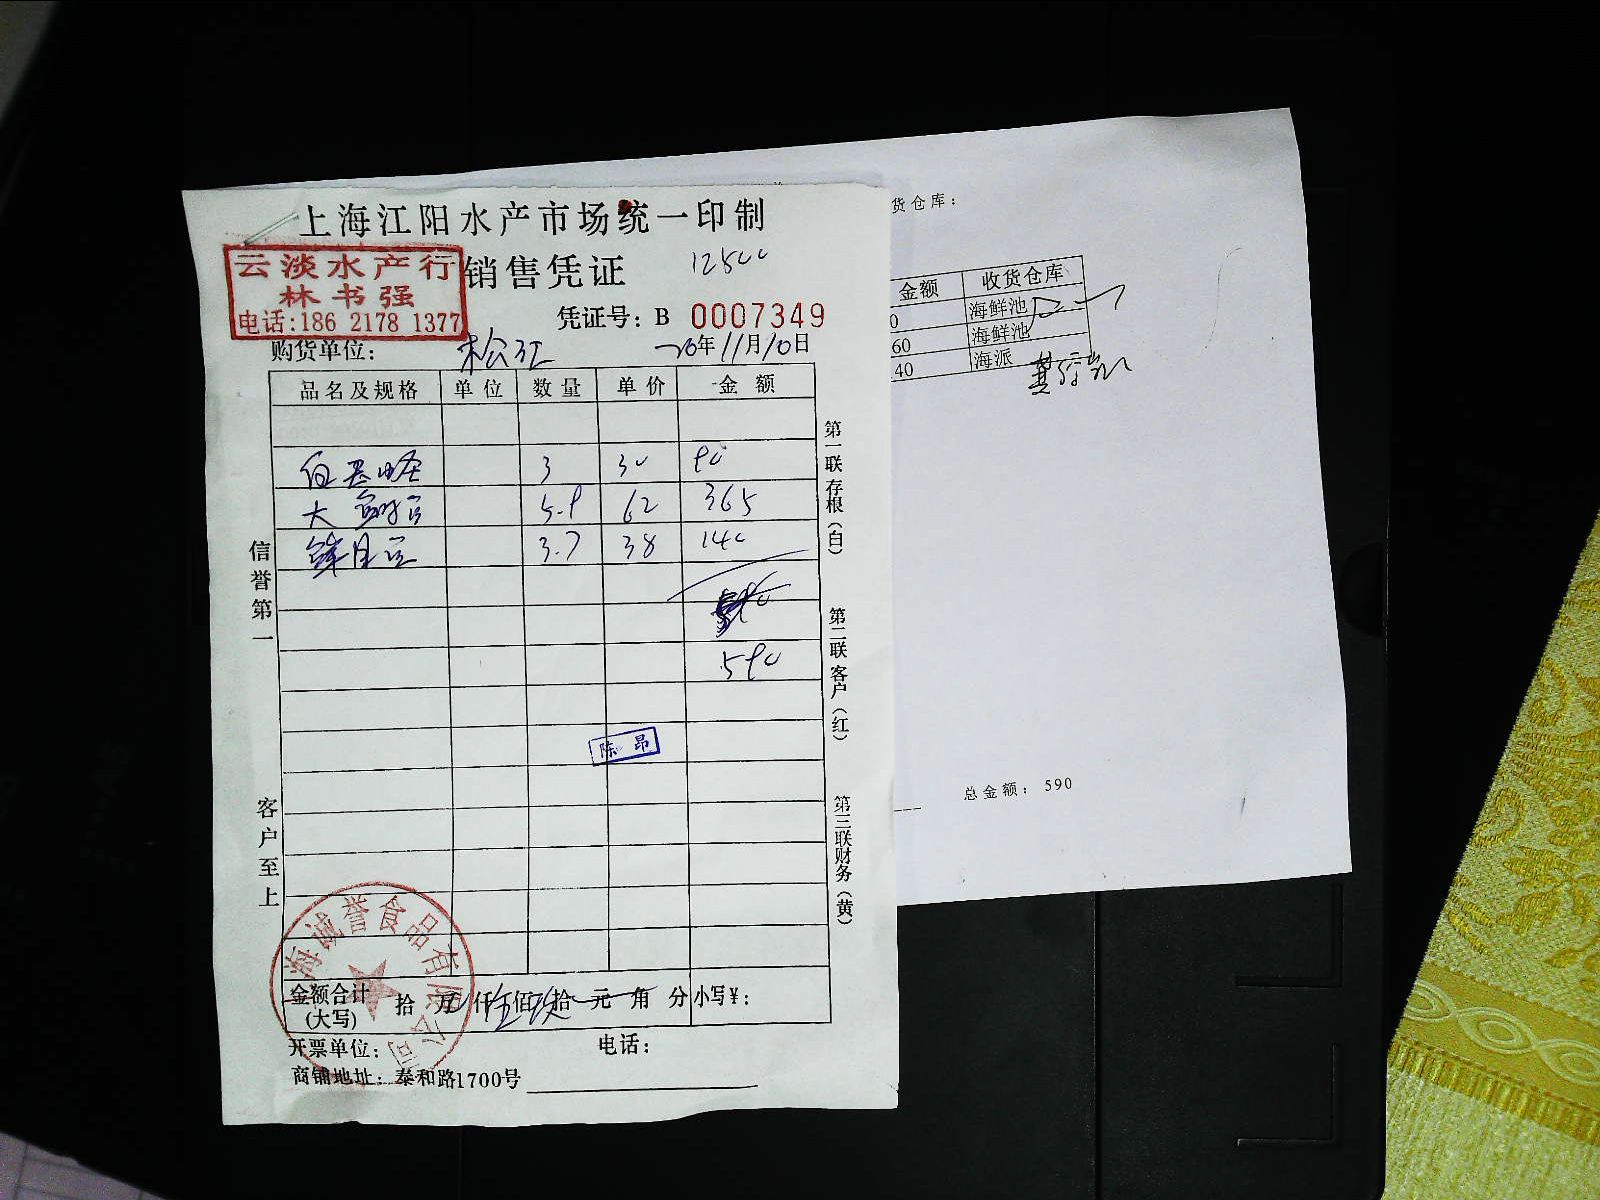 上海江阳水产市场统一印制
云淡水产行
林书强
电话:186 2178 1377
销售凭证
12500
凭证号: B 0007349
购货单位: 松江
20年11月10日
品名及规格 单位 数量 单价 金额
白 3 30 90
大 5.9 62 365
3.7 38 140
590
陈昂
信誉第一
客户至上
第一联存根(白)
第二联客户(红)
第三联财务(黄)
海诚誉食品有限公司
金额合计
(大写)
拾 万 仟 伍佰玖拾 元 角 分 小写¥:
开票单位:
电话:
商铺地址: 泰和路1700号
货仓库:
金额 收货仓库
0 海鲜池
60 海鲜池
140 海派
总金额: 590